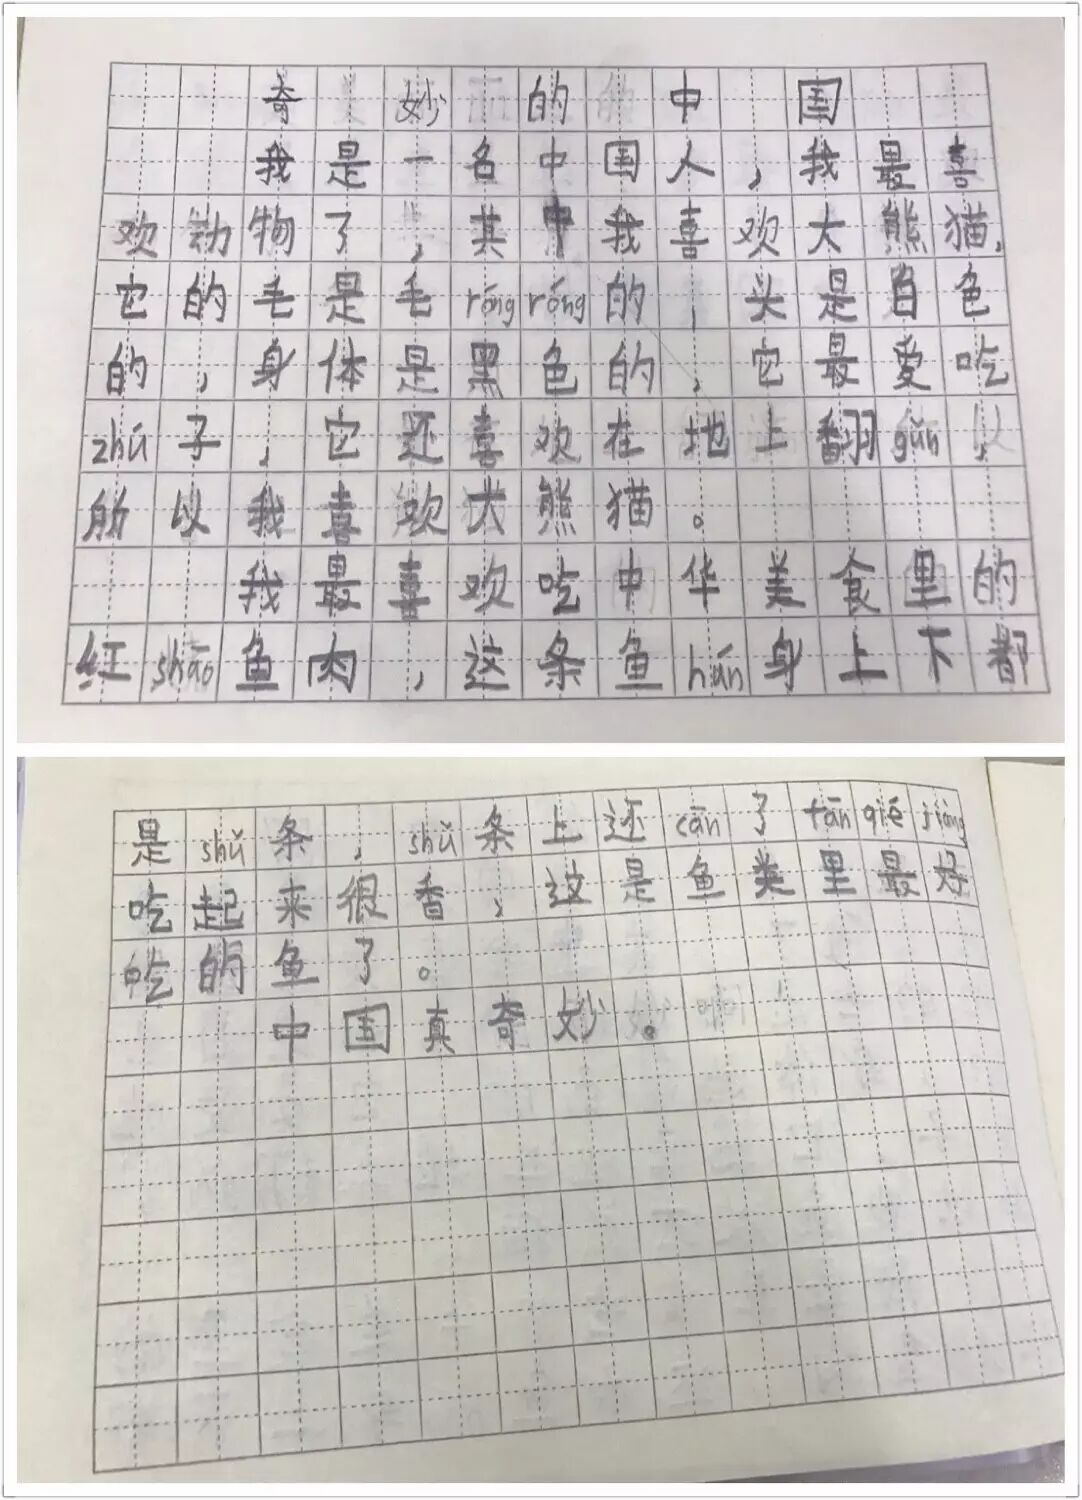 奇妙的中国
我是一名中国人,我最喜
欢动物了,其中我喜欢大熊猫,
它的毛是毛róngróng的,头是白色
的,身体是黑色的,它最爱吃
zhú子,它还喜欢在地上翻gǔn,
所以我喜欢大熊猫。
我最喜欢吃中华美食里的
红shāo鱼肉,这条鱼hún身上下都
是shǔ条,shǔ条上还cān了fān qié jiàng
吃起来很香,这是鱼类里最好
吃的鱼了。
中国真奇妙。